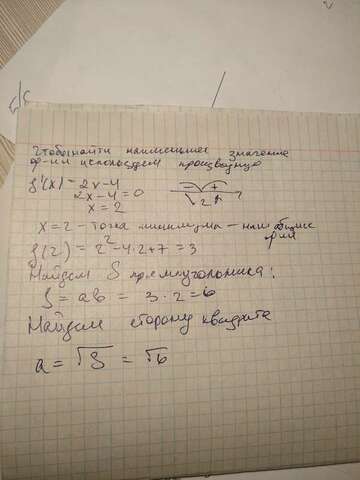 Чтобы найти наименьшее значение
ф-ии используем производную
f'(x) = 2x-4
2x-4=0
x=2
- +
2
x=2 - точка минимума - наим
f(2) = 2²-4·2+7 = 3
Найдем S прямоугольника:
S = ab = 3·2=6
Найдем сторону квадрата
a = √S = √6